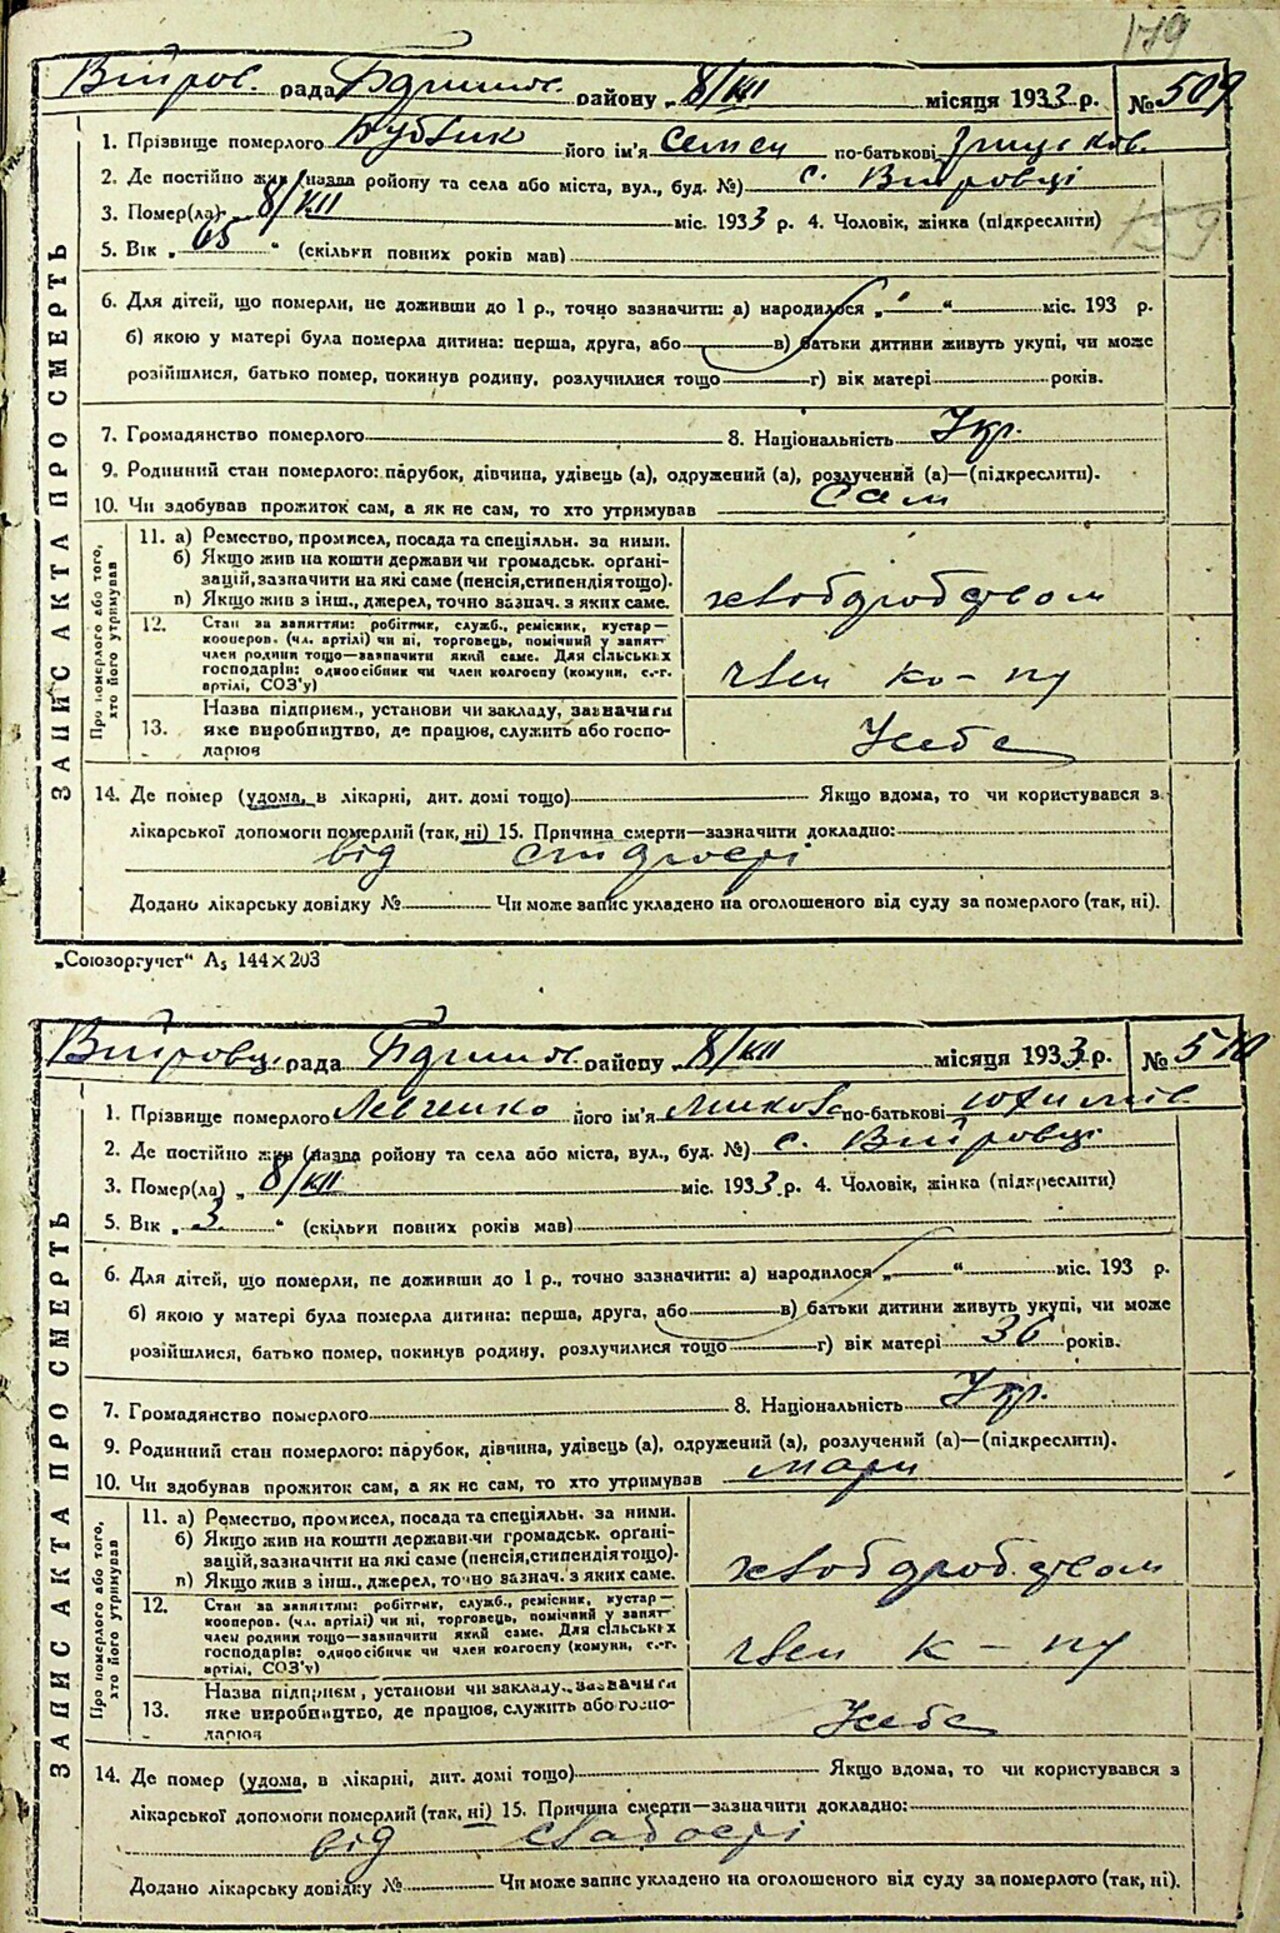 179
Війров. рада Бдишів. району „8/XII місяця 1933 р. № 509
1. Прізвище померлого його ім'я Семен по-батькові Грицьков.
2. Де постійно жив (назва ройону та села або міста, вул., буд. №) с. Вийровці
3. Помер(ла) „ 8/XII міс. 1933 р. 4. Чоловік, жінка (підкреслити)
159
5. Вік „ 65 “ (скільки повних років мав)
6. Для дітей, що померли, не доживши до 1 р., точно зазначити: а) народилося „ “ міс. 193 р.
б) якою у матері була померла дитина: перша, друга, або в) батьки дитини живуть укупі, чи може
розійшлися, батько помер, покинув родину, розлучилися тощо г) вік матері років.
7. Громадянство померлого 8. Національність Укр.
9. Родинний стан померлого: парубок, дівчина, удівець (а), одружений (а), розлучений (а)—(підкреслити).
10. Чи здобував прожиток сам, а як не сам, то хто утримував сам
ЗАПИС АКТА ПРО СМЕРТЬ
Про померлого або того, хто його утримував
11. а) Ремество, промисел, посада та спеціяльн. за ними.
б) Якщо жив на кошти держави чи громадськ. організацій, зазначити на які саме (пенсія, стипендія тощо).
в) Якщо жив з інш., джерел, точно зазнач. з яких саме.
хлібдробством
12. Стан за заняттям: робітник, служб., ремісник, кустар—
кооперов. (чл. артілі) чи ні, торговець, помічний у занят-
член родини тощо—зазначити який саме. Для сільських
господарів: одноосібник чи член колгоспу (комуни, с.-г.
артілі, СОЗ'у)
член ко-пу
13. Назва підприєм., установи чи закладу, зазначити
яке виробництво, де працює, служить або госпо-
дарює
У себе
14. Де помер (удома, в лікарні, дит. домі тощо) Якщо вдома, то чи користувався з
лікарської допомоги померлий (так, ні) 15. Причина смерти—зазначити докладно:
від
Додано лікарську довідку № Чи може запис укладено на оголошеного від суду за померлого (так, ні).
„Союзоргучет“ А5 144×203
Вийровц. рада Бдишів. району „8/XII місяця 1933 р. № 510
1. Прізвище померлого Левченко його ім'я Микола по-батькові Юхимів
2. Де постійно жив (назва ройону та села або міста, вул., буд. №) с. Вийровці
3. Помер(ла) „ 8/XII міс. 1933 р. 4. Чоловік, жінка (підкреслити)
5. Вік „ 3 “ (скільки повних років мав)
6. Для дітей, що померли, не доживши до 1 р., точно зазначити: а) народилося „ “ міс. 193 р.
б) якою у матері була померла дитина: перша, друга, або в) батьки дитини живуть укупі, чи може
розійшлися, батько помер, покинув родину, розлучилися тощо г) вік матері 36 років.
7. Громадянство померлого 8. Національність Укр.
9. Родинний стан померлого: парубок, дівчина, удівець (а), одружений (а), розлучений (а)—(підкреслити).
10. Чи здобував прожиток сам, а як не сам, то хто утримував мати
ЗАПИС АКТА ПРО СМЕРТЬ
Про померлого або того, хто його утримував
11. а) Ремество, промисел, посада та спеціяльн. за ними.
б) Якщо жив на кошти держави чи громадськ. організацій, зазначити на які саме (пенсія, стипендія тощо).
в) Якщо жив з інш., джерел, точно зазнач. з яких саме.
хлібдробством
12. Стан за заняттям: робітник, служб., ремісник, кустар—
кооперов. (чл. артілі) чи ні, торговець, помічний у занят-
член родини тощо—зазначити який саме. Для сільських
господарів: одноосібник чи член колгоспу (комуни, с.-г.
артілі, СОЗ'у)
член к-пу
13. Назва підприєм., установи чи закладу, зазначити
яке виробництво, де працює, служить або госпо-
дарює
У себе
14. Де помер (удома, в лікарні, дит. домі тощо) Якщо вдома, то чи користувався з
лікарської допомоги померлий (так, ні) 15. Причина смерти—зазначити докладно:
від слабості
Додано лікарську довідку № Чи може запис укладено на оголошеного від суду за померлого (так, ні).